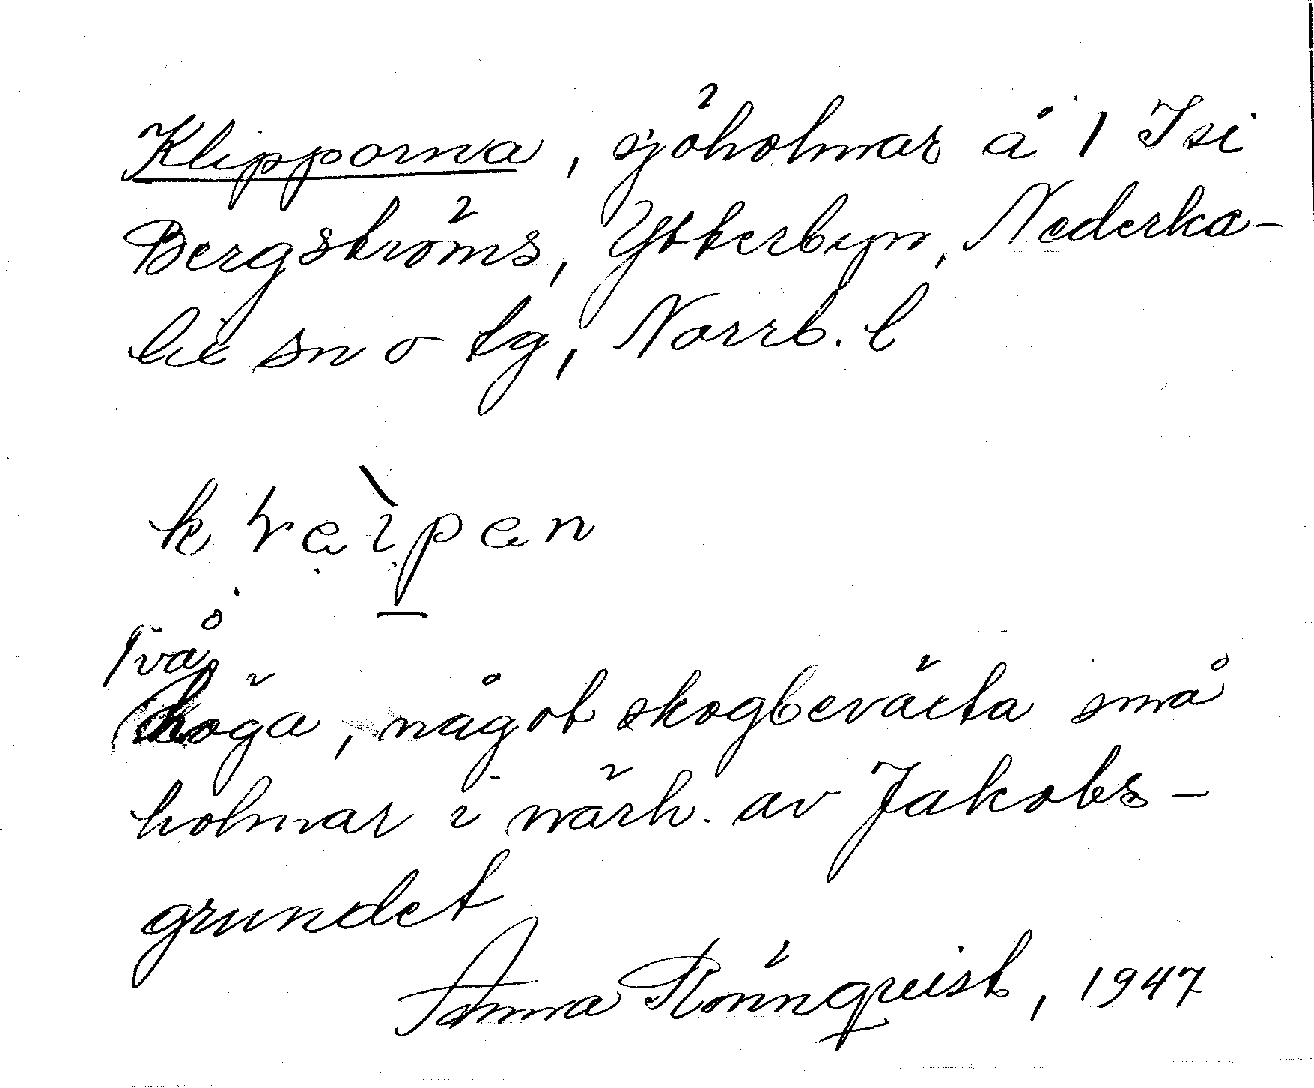 Klipporna, sjöholmar å 1 Isi
Bergströms, Ytterbyn, Nederka-
lix sn o tg, Norrb. l
Två
höga, något skogbevärta små
holmar i närh. av Jakobs-
grundet
Anna Rönnqvist, 1947